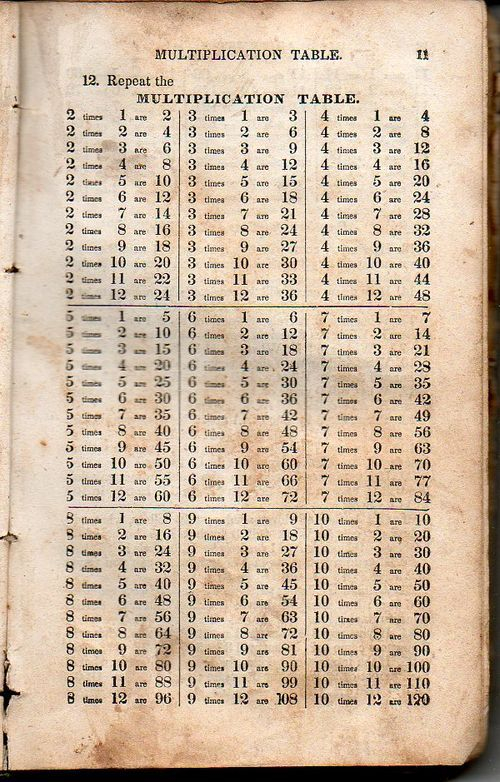 MULTIPLICATION TABLE. 11
12. Repeat the
MULTIPLICATION TABLE.
2 times 1 are 2 3 times 1 are 3 4 times 1 are 4
2 times 2 are 4 3 times 2 are 6 4 times 2 are 8
2 times 3 are 6 3 times 3 are 9 4 times 3 are 12
2 times 4 are 8 3 times 4 are 12 4 times 4 are 16
2 times 5 are 10 3 times 5 are 15 4 times 5 are 20
2 times 6 are 12 3 times 6 are 18 4 times 6 are 24
2 times 7 are 14 3 times 7 are 21 4 times 7 are 28
2 times 8 are 16 3 times 8 are 24 4 times 8 are 32
2 times 9 are 18 3 times 9 are 27 4 times 9 are 36
2 times 10 are 20 3 times 10 are 30 4 times 10 are 40
2 times 11 are 22 3 times 11 are 33 4 times 11 are 44
2 times 12 are 24 3 times 12 are 36 4 times 12 are 48
5 times 1 are 5 6 times 1 are 6 7 times 1 are 7
5 times 2 are 10 6 times 2 are 12 7 times 2 are 14
5 times 3 are 15 6 times 3 are 18 7 times 3 are 21
5 times 4 are 20 6 times 4 are 24 7 times 4 are 28
5 times 5 are 25 6 times 5 are 30 7 times 5 are 35
5 times 6 are 30 6 times 6 are 36 7 times 6 are 42
5 times 7 are 35 6 times 7 are 42 7 times 7 are 49
5 times 8 are 40 6 times 8 are 48 7 times 8 are 56
5 times 9 are 45 6 times 9 are 54 7 times 9 are 63
5 times 10 are 50 6 times 10 are 60 7 times 10 are 70
5 times 11 are 55 6 times 11 are 66 7 times 11 are 77
5 times 12 are 60 6 times 12 are 72 7 times 12 are 84
8 times 1 are 8 9 times 1 are 9 10 times 1 are 10
8 times 2 are 16 9 times 2 are 18 10 times 2 are 20
8 times 3 are 24 9 times 3 are 27 10 times 3 are 30
8 times 4 are 32 9 times 4 are 36 10 times 4 are 40
8 times 5 are 40 9 times 5 are 45 10 times 5 are 50
8 times 6 are 48 9 times 6 are 54 10 times 6 are 60
8 times 7 are 56 9 times 7 are 63 10 times 7 are 70
8 times 8 are 64 9 times 8 are 72 10 times 8 are 80
8 times 9 are 72 9 times 9 are 81 10 times 9 are 90
8 times 10 are 80 9 times 10 are 90 10 times 10 are 100
8 times 11 are 88 9 times 11 are 99 10 times 11 are 110
8 times 12 are 96 9 times 12 are 108 10 times 12 are 120